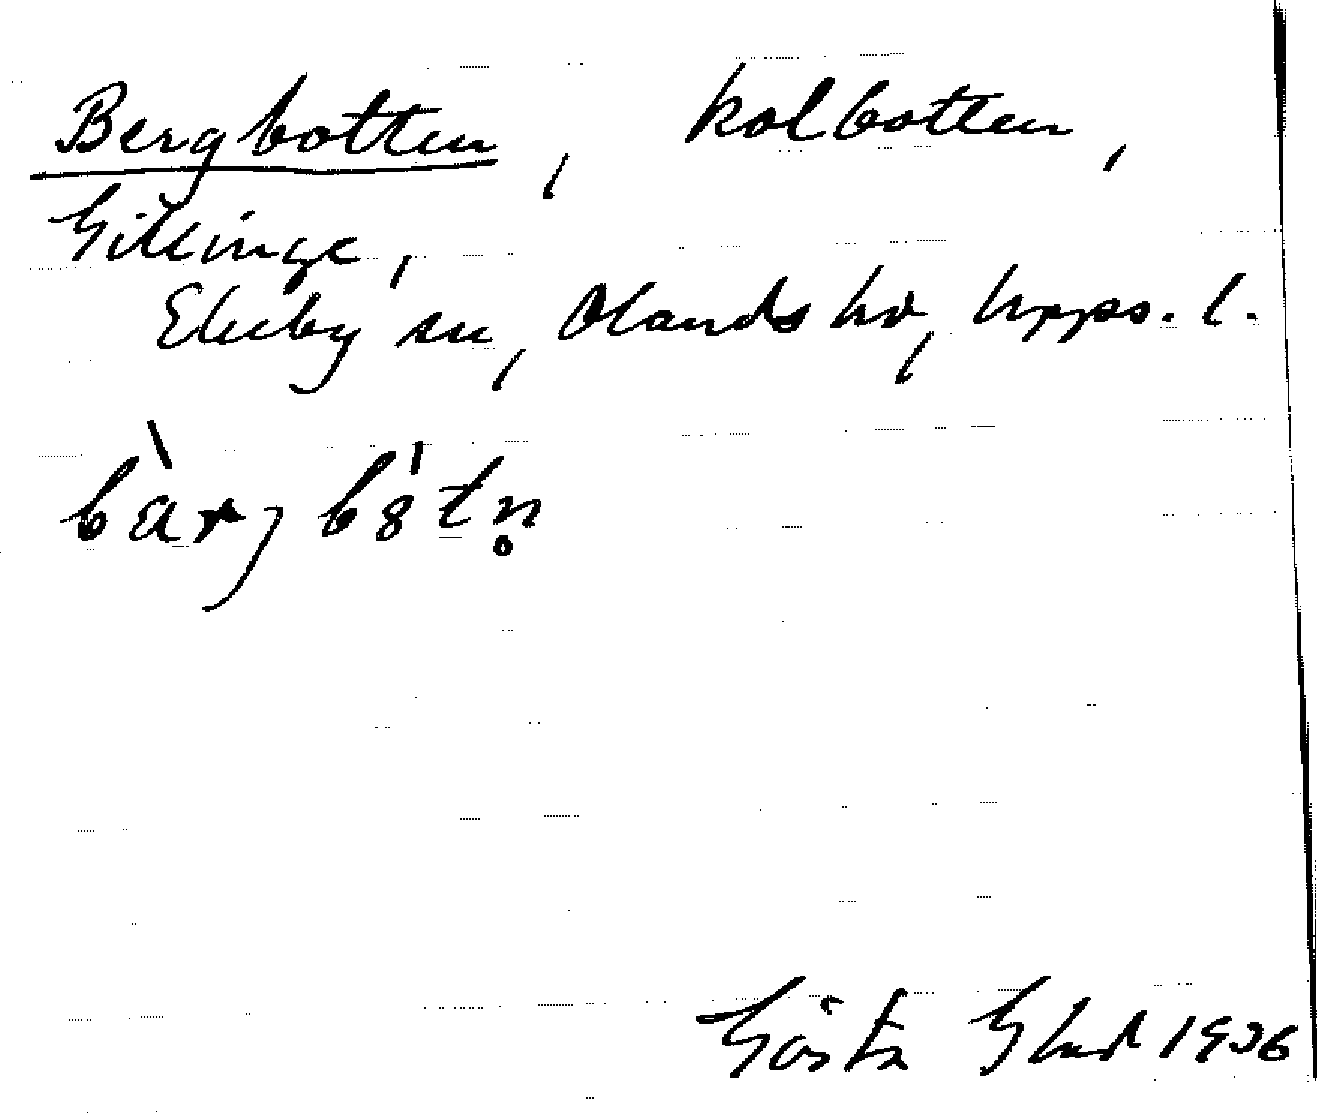 Bergbotten, kolbotten,
Gillinge,
Ekeby sn, Olands hd, Upps. l.
Gösta 1936